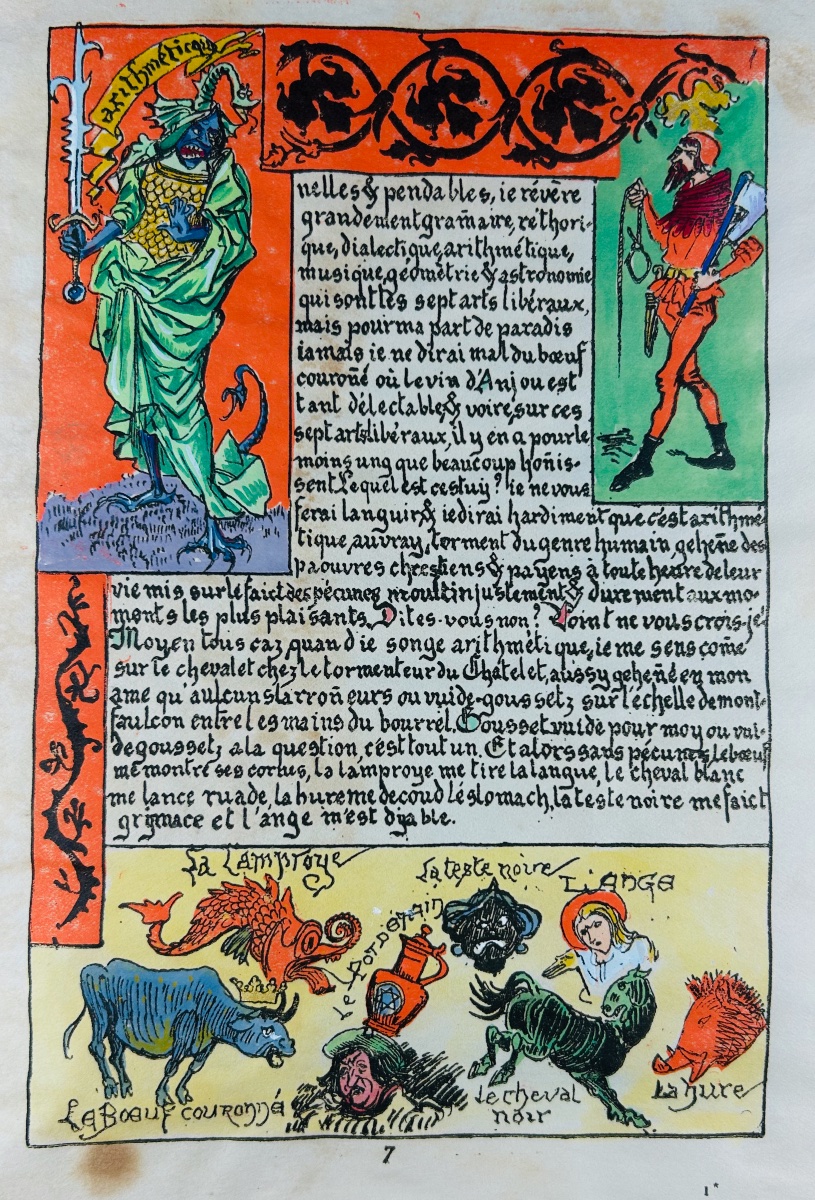 arithméticque
nelles & pendables, ie révère
grandement gram̃aire, réthori-
que, dialectique, arithmétique,
musique, géométrie & astronomie
qui sont les sept arts libéraux,
mais pour ma part de paradis
iamais ie ne dirai mal du bœuf
couroñé où le vin d'Anjou est
tant délectable, & voire, sur ces
sept arts libéraux, il y en a pour le
moins ung que beaucoup hoñis-
sent. Lequel est cestuy? ie ne vous
ferai languir & ie dirai hardiment que c'est arithmé-
tique, au vray, torment du genre humain, geheñe des
paouvres chrestiens & payens à toute heure de leur
vie mis sur le faict des pécunes moult injustement & durement aux mo-
ments les plus plaisants. Dites-vous non? Point ne vous crois-je!
Moy en tous caz quand ie songe arithmétique, ie me sens com̃e
sur le chevalet chez le tormenteur du Châtelet, aussy geheñé en mon
ame qu'aulcuns larroñeurs ou vuide-goussetz sur l'échelle de mont-
faulcon entre les mains du bourrel. Gousset vuide pour moy ou vui-
degoussetz a la question, c'est tout un. Et alors sans pécunes, le bœuf
me montre ses cornes, la lamproye me tire la langue, le cheval blanc
me lance ruade, la hure me decoud l'éstomach, la teste noire me faict
grymace et l'ange m'est dyable.
La Lamproye
La teste noire
L'Ange
Le Pot d'étain
Le Bœuf couronné
Le cheval
noir
La hure
7
1*